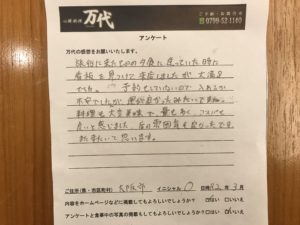 山郷料理 万代
ご予約・お問合せ
☎0799-52-1160
アンケート
万代の感想をお願いいたします。
旅行に来たものの夕食に迷っていた時に
看板を見つけて来店しましたが大満足
でした。予約もしていないので入れるか
不安でしたが、運が良かったみたいで
料理も大変美味で、量も多く、コスパも
良いと感じました。店の雰囲気も良かったです。
また来たいと思います。
ご住所(県・市区町村) 大阪市 イニシャル O 日時 R2年 3月
内容をホームページなどに掲載してもよろしいでしょうか? はい いいえ
アンケートと食事中の写真の掲載してもよろしいでしょうか? はい いいえ